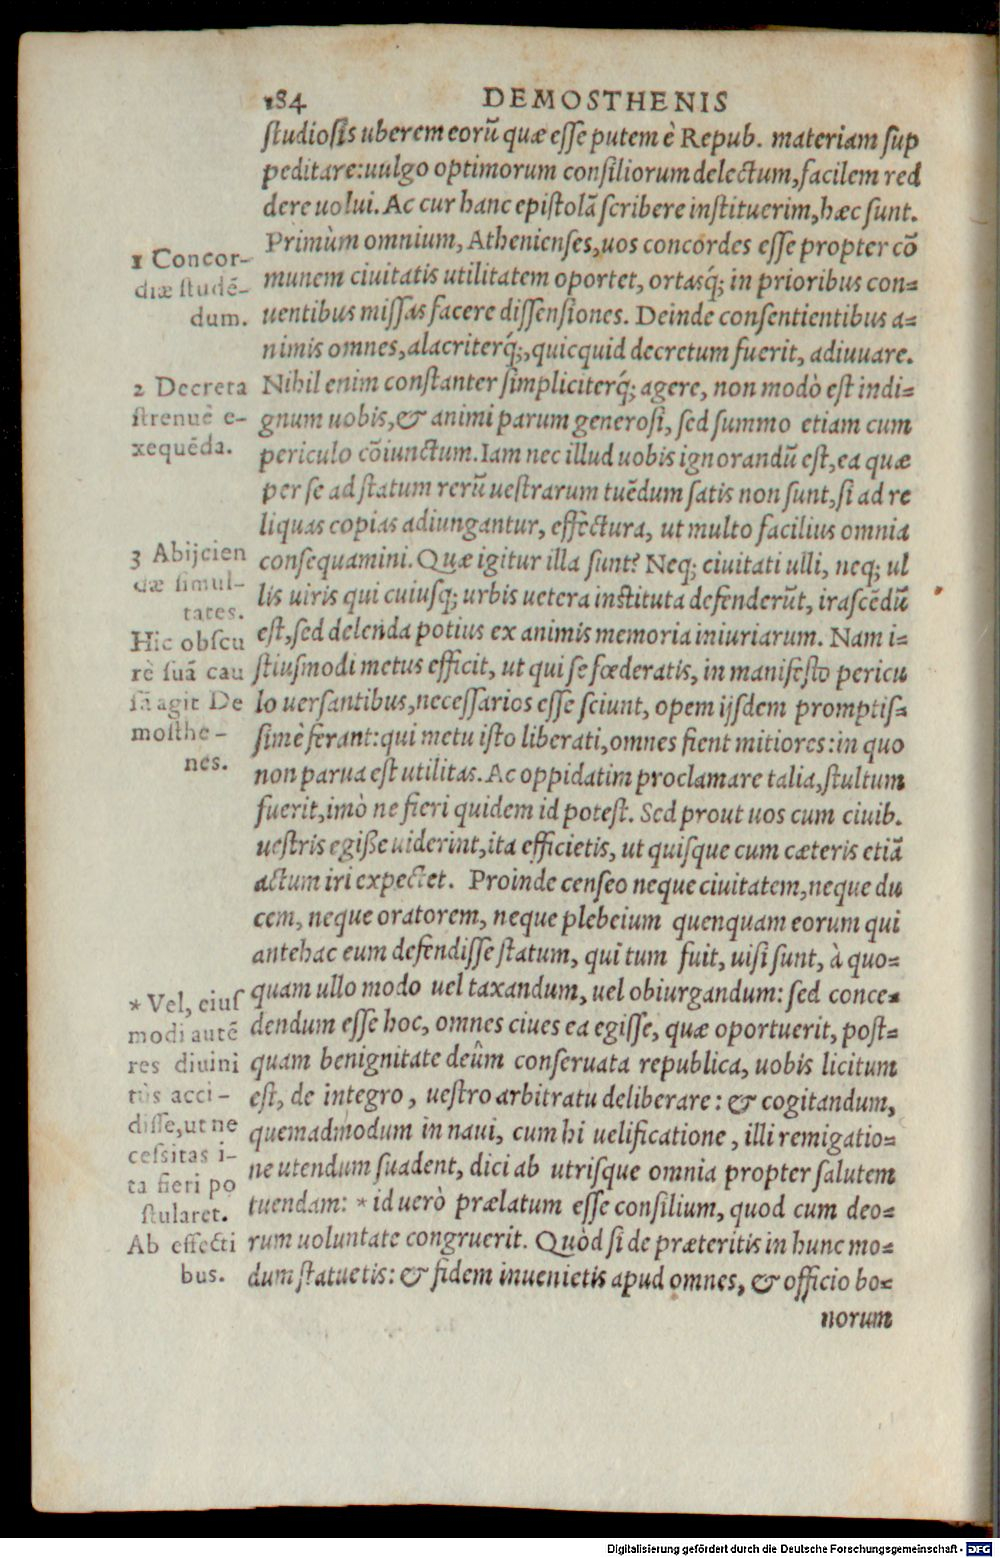 184 DEMOSTHENIS
studiosis uberem eorũ quæ esse putem è Repub. materiam sup
peditare: uulgo optimorum consiliorum delectum, facilem red
dere uolui. Ac cur hanc epistolã scribere instituerim, hæc sunt.
Primùm omnium, Athenienses, uos concordes esse propter cõ
munem ciuitatis utilitatem oportet, ortasq́; in prioribus con=
uentibus missas facere dissensiones. Deinde consentientibus a=
nimis omnes, alacriterq́;, quicquid decretum fuerit, adiuuare.
Nihil enim constanter simpliciterq́; agere, non modò est indi=
gnum uobis, & animi parum generosi, sed summo etiam cum
periculo cõiunctum. Iam nec illud uobis ignorandũ est, ea quæ
per se ad statum rerũ uestrarum tuẽdum satis non sunt, si ad re
liquas copias adiungantur, effectura, ut multo facilius omnia
consequamini. Quæ igitur illa sunt? Neq; ciuitati ulli, neq; ul
lis uiris qui cuiusq; urbis uetera instituta defenderũt, irascẽdũ
est, sed delenda potius ex animis memoria iniuriarum. Nam i=
stiusmodi metus efficit, ut qui se fœderatis, in manifesto pericu
lo uersantibus, necessarios esse sciunt, opem ijsdem promptis=
simè ferant: qui metu isto liberati, omnes fient mitiores: in quo
non parua est utilitas. Ac oppidatim proclamare talia, stultum
fuerit, imò ne fieri quidem id potest. Sed prout uos cum ciuib.
uestris egiße uiderint, ita efficietis, ut quisque cum cæteris etiã
actum iri expectet. Proinde censeo neque ciuitatem, neque du
cem, neque oratorem, neque plebeium quenquam eorum qui
antehac eum defendisse statum, qui tum fuit, uisi sunt, à quo=
quam ullo modo uel taxandum, uel obiurgandum: sed conce=
dendum esse hoc, omnes ciues ea egisse, quæ oportuerit, post=
quam benignitate deûm conseruata republica, uobis licitum
est, de integro, uestro arbitratu deliberare: & cogitandum,
quemadmodum in naui, cum hi uelificatione, illi remigatio=
ne utendum suadent, dici ab utrisque omnia propter salutem
tuendam: * id uerò prælatum esse consilium, quod cum deo=
rum uoluntate congruerit. Quòd si de præteritis in hunc mo=
dum statuetis: & fidem inuenietis apud omnes, & officio bo=
norum
1 Concor-
diæ studẽ-
dum.
2 Decreta
strenuè e-
xequẽda.
3 Abijcien
dæ simul-
tates.
Hic obscu
rè suã cau
sã agit De
mosthe-
nes.
* Vel, eius
modi autẽ
res diuini
tùs acci-
disse, ut ne
cessitas i-
ta fieri po
stularet.
Ab effecti
bus.
Digitalisierung gefördert durch die Deutsche Forschungsgemeinschaft - DFG